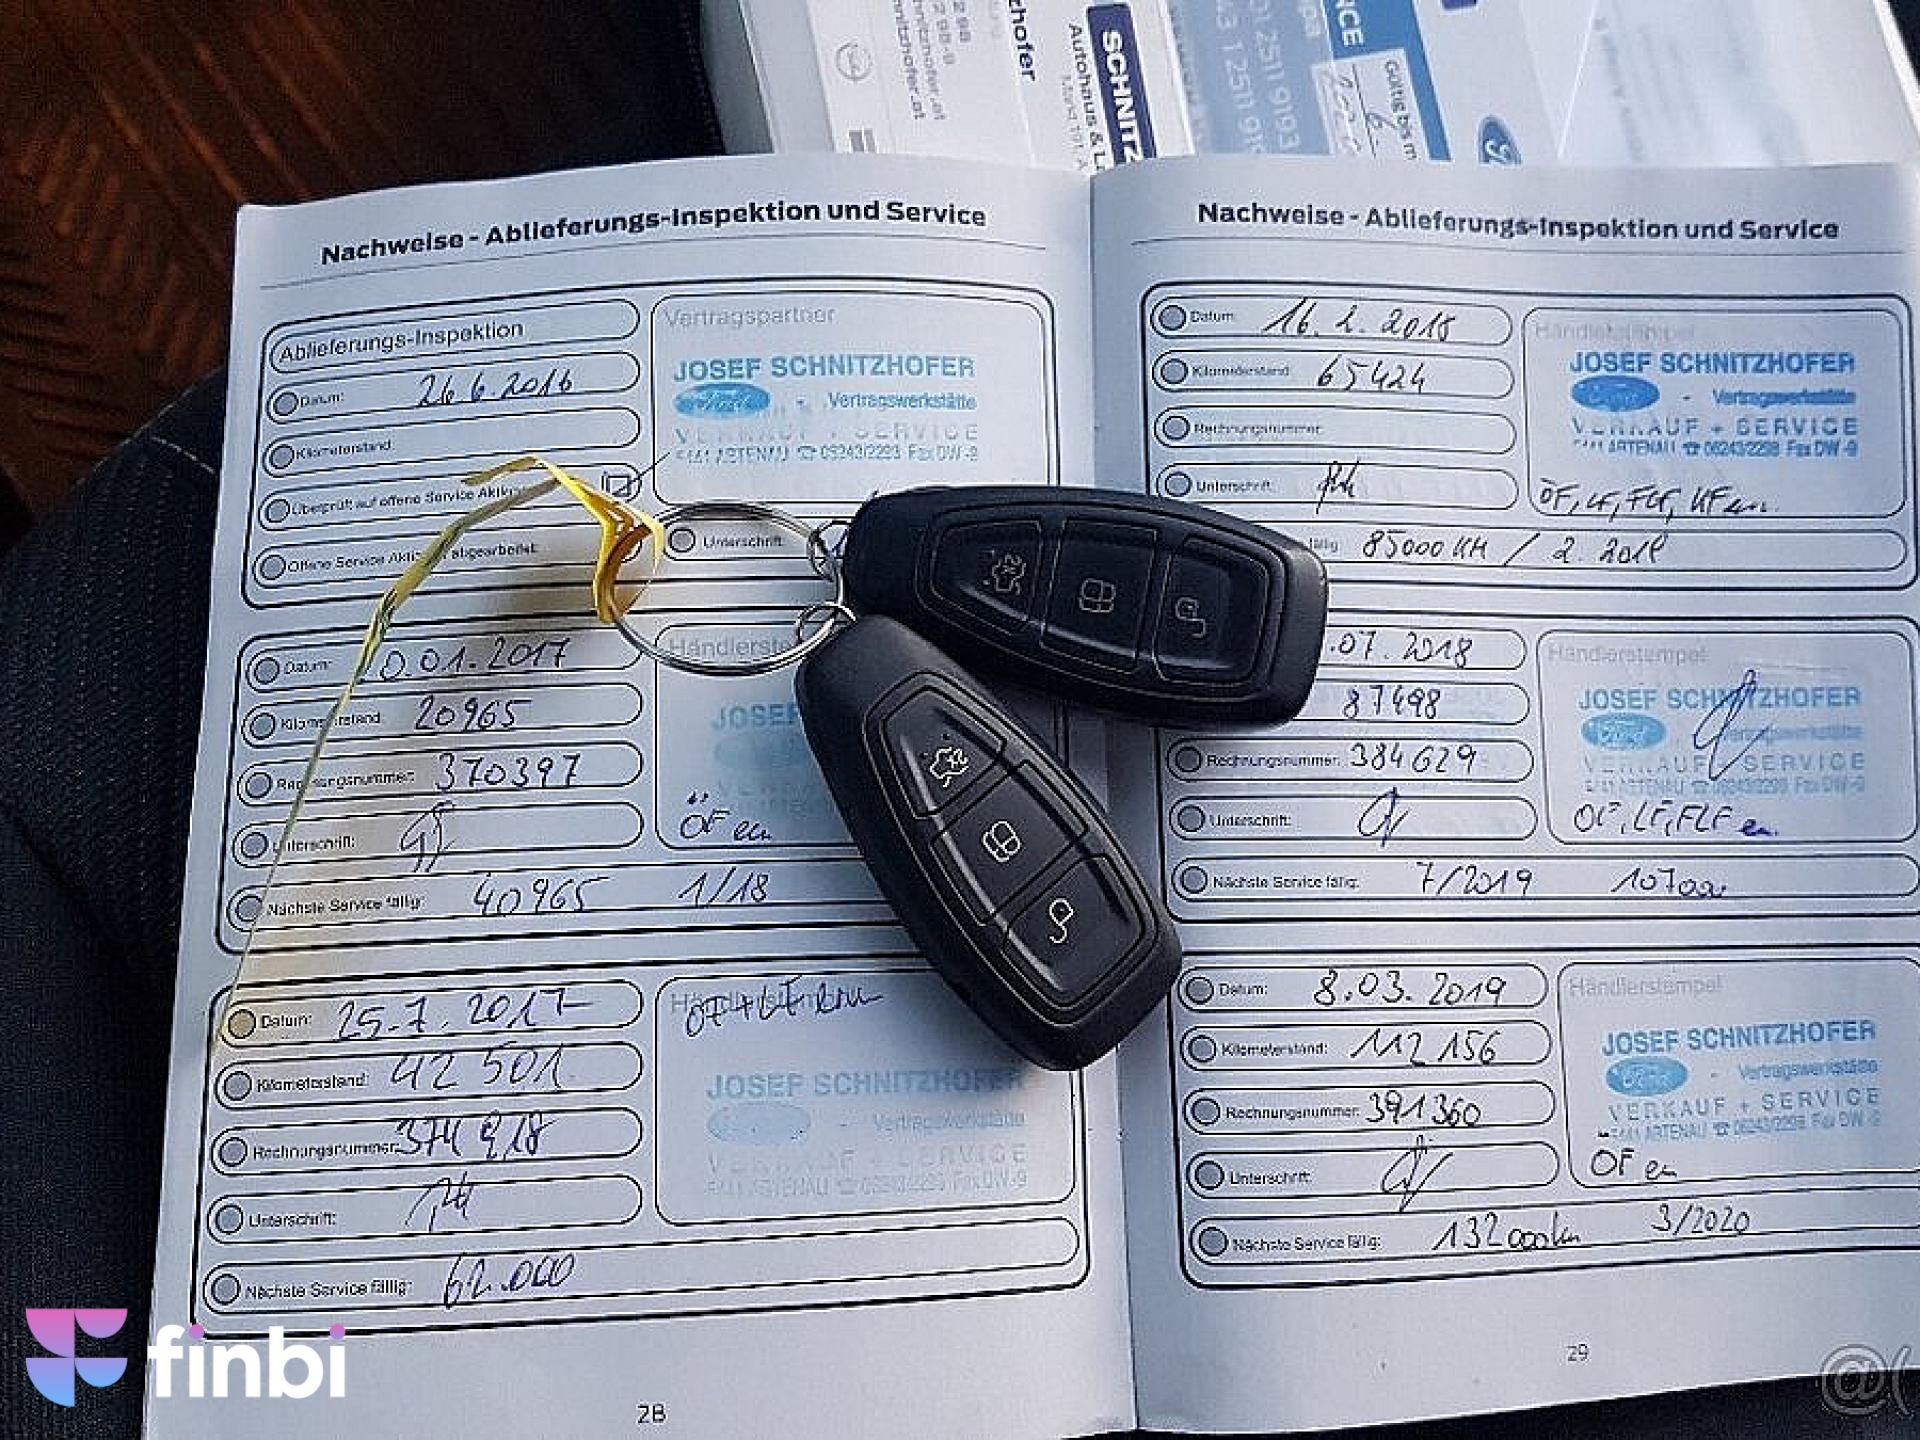 zhofer
SCHNITZ
Autohaus & L
NCE
Gültig bis
Nachweise - Ablieferungs-Inspektion und Service
Ablieferungs-Inspektion
Datum: 26.6.2016
Kilometerstand:
Überprüft auf offene Service Aktion
Offene Service Aktion abgearbeitet:
Vertragspartner
JOSEF SCHNITZHOFER
Ford - Vertragswerkstätte
VERKAUF + SERVICE
5441 ABTENAU ☎ 06243/2298 Fax DW -9
Unterschrift:
Datum: 0.01.2017
Kilometerstand: 20965
Rechnungsnummer: 370397
Unterschrift:
Nächste Service fällig: 40965 1/18
Händlerste
JOSEF
ÖF
Datum: 25.7.2017
Kilometerstand: 42501
Rechnungsnummer: 374918
Unterschrift:
Nächste Service fällig: 62.000
JOSEF SCHNITZHOFER
- Vertragswerkstätte
VERKAUF + SERVICE
5441 ABTENAU ☎ 06243/2298 Fax DW -9
28
Nachweise - Ablieferungs-Inspektion und Service
Datum: 16.2.2018
Kilometerstand: 65424
Rechnungsnummer:
Unterschrift:
fällig: 85000 KM / 2.2019
Händlerstempel
JOSEF SCHNITZHOFER
Ford - Vertragswerkstätte
VERKAUF + SERVICE
5441 ABTENAU ☎ 06243/2298 Fax DW -9
ÖF, LF, FLF, KF
.07.2018
87498
Rechnungsnummer: 384629
Unterschrift:
Nächste Service fällig: 7/2019 107000
Händlerstempel
JOSEF SCHNITZHOFER
Ford Vertragswerkstätte
VERKAUF + SERVICE
5441 ABTENAU ☎ 06243/2298 Fax DW -9
ÖF, LF, FLF
Datum: 8.03.2019
Kilometerstand: 112156
Rechnungsnummer: 391360
Unterschrift:
Nächste Service fällig: 132000km 3/2020
Händlerstempel
JOSEF SCHNITZHOFER
Ford - Vertragswerkstätte
VERKAUF + SERVICE
5441 ABTENAU ☎ 06243/2298 Fax DW -9
ÖF
29
finbi
@(